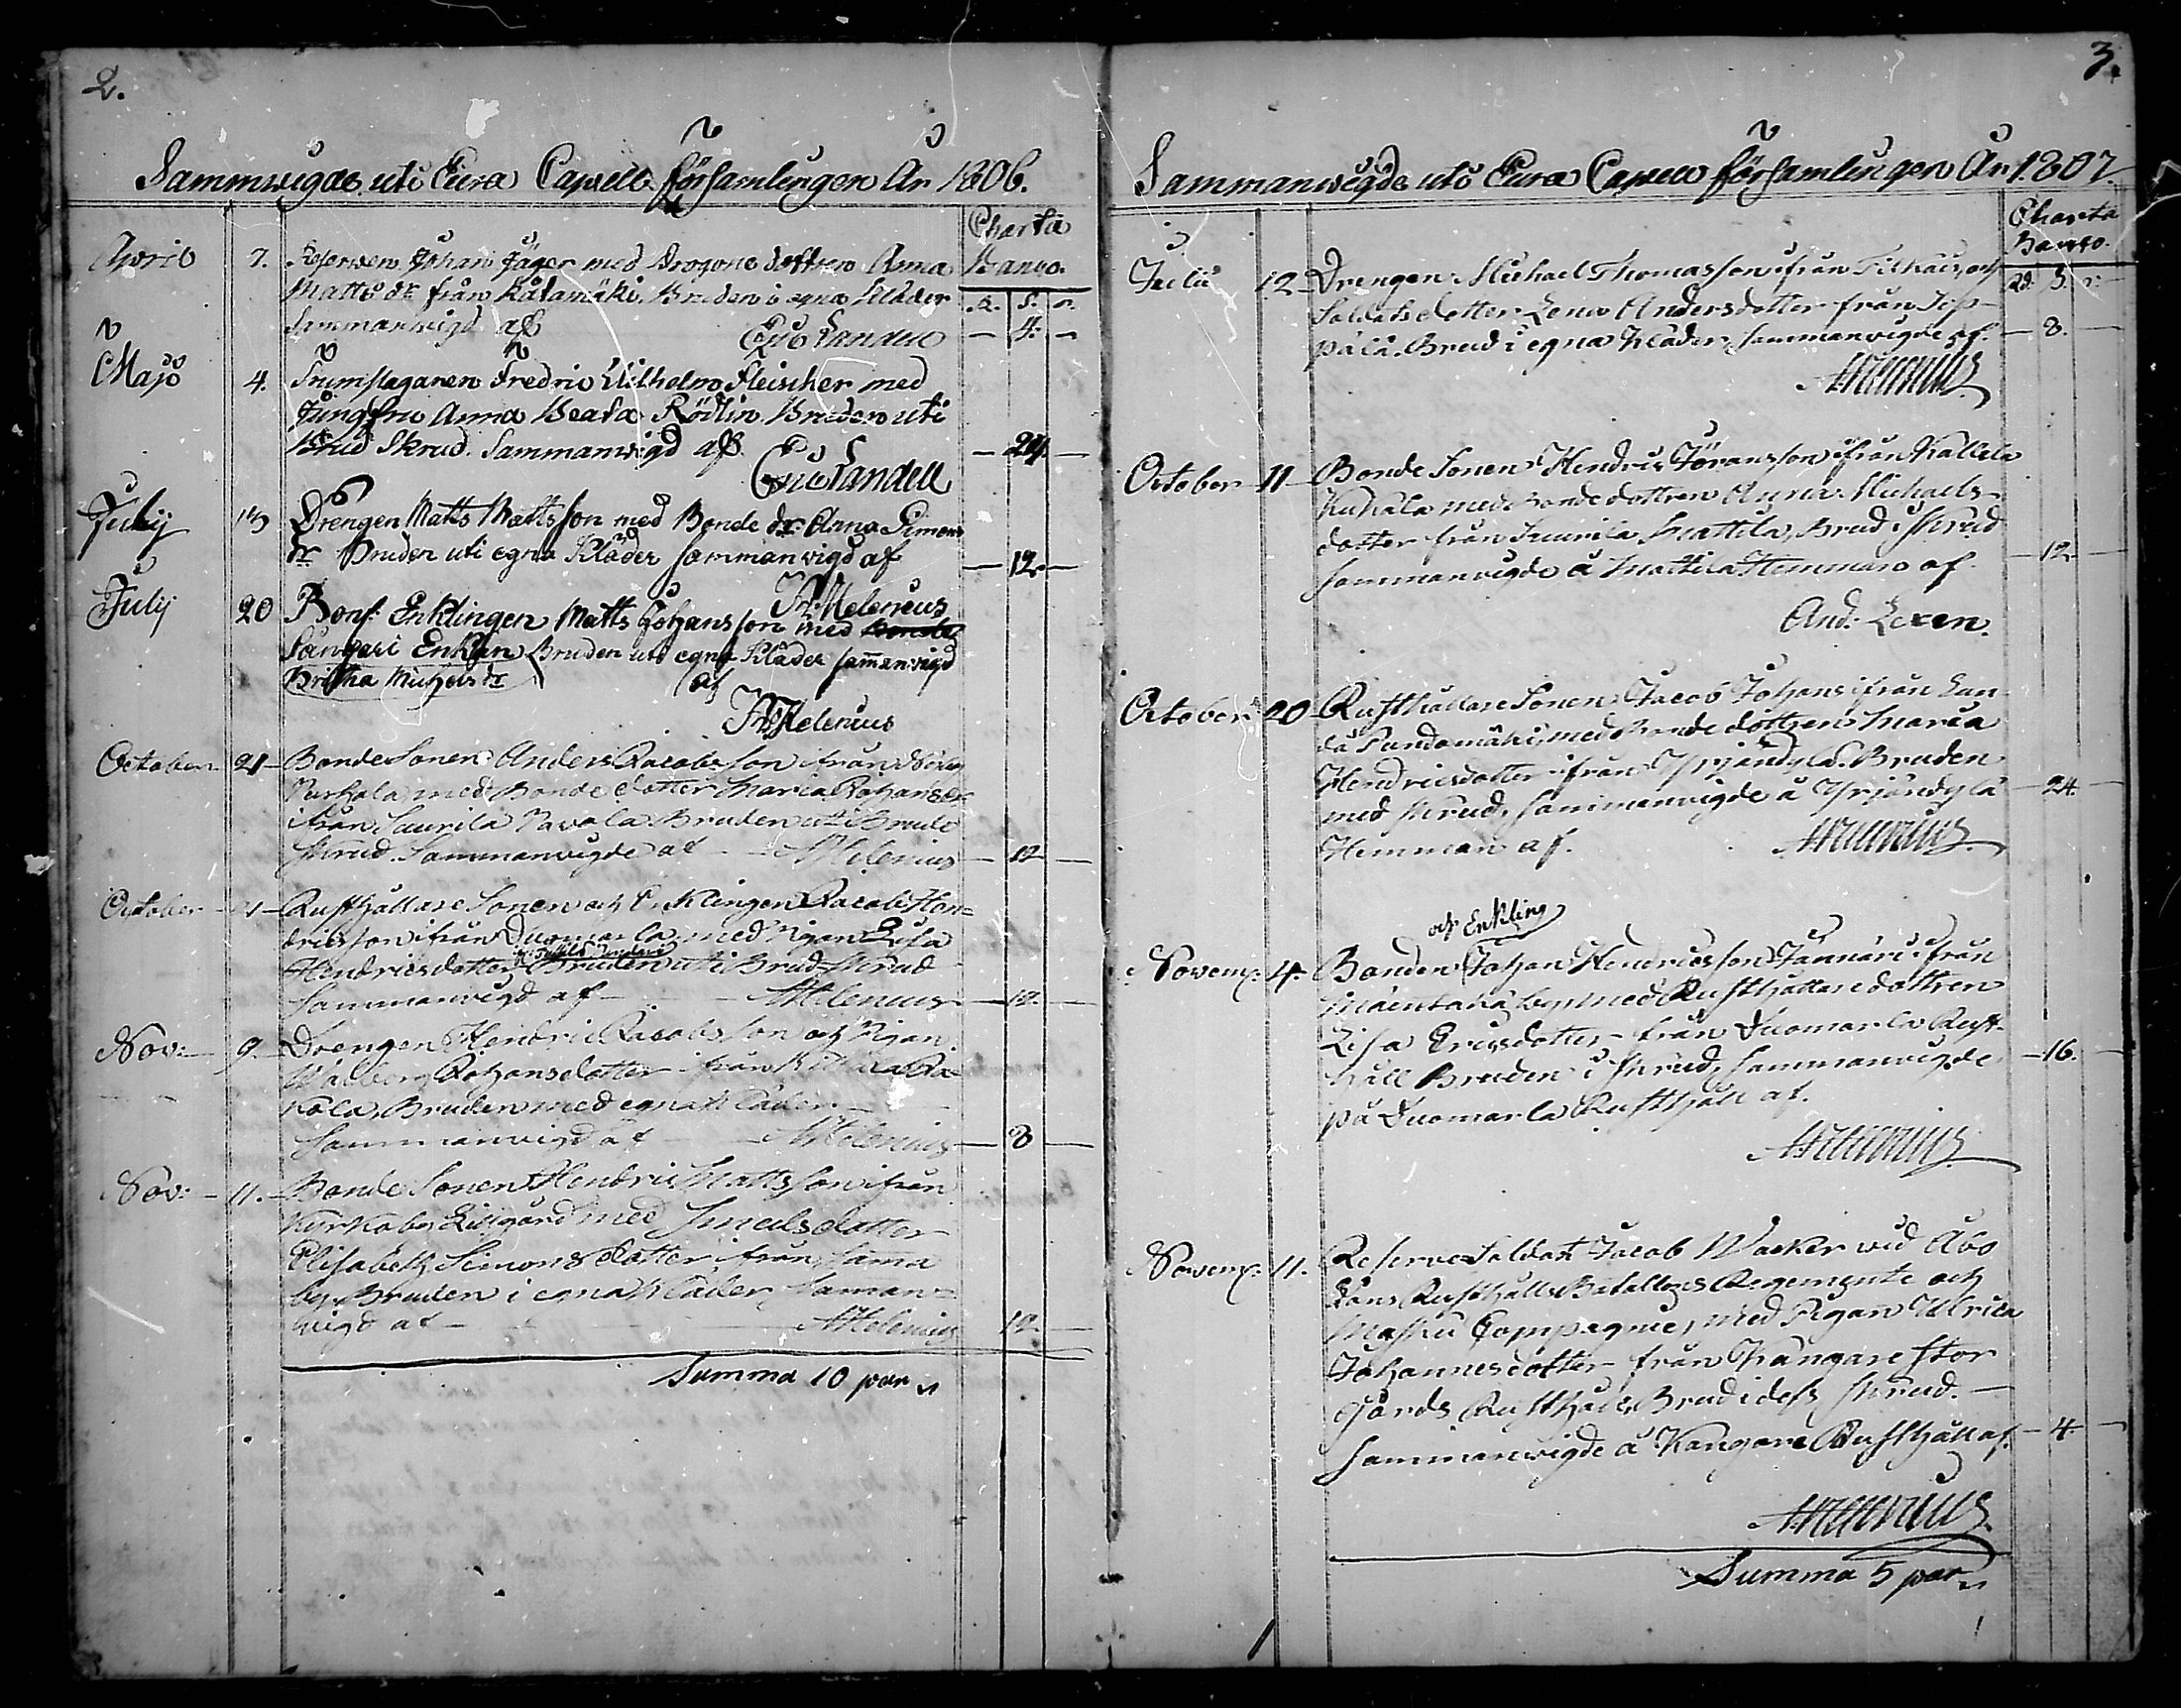 2.
Sammwigde uti Eura Capell församlingen År 1806.
Charta
Banco.
R. S. r.
April 7. Reserven Johan Jäger med Dragone dottren Anna
Matts dr från Kåtamäki, Bruden i egna Kläder
Sammanwigd af Eric Sandell — 4. —
Majo 4. Trumslagaren Fredric Wilhelm Fleischer med
Jungfru Anna Beata Rödlin Bruden uti
Brud Skrud. Sammanwigd af — 24. —
Eric Sandell
Julij 13 Drengen Matts Mattsson med Bonde dr Anna Simons
dr Bruden uti egna Kläder sammanwigd af — 12. —
Helenius
Julij 20 Enklingen Matts Johansson med
Enkan Bruden uti egna Kläder sam̄anwigd
Britha Michels dr af
Helenius
October 21 Bonde Sonen Anders Jacobsson ifrån
med Bonde dotter Maria Johans dr
ifrån Saurila Bruden uti Brud
skrud. Sammanwigde af — Helenius — 12 —
October 21 Rusthållare Sonen och Enklingen Jacob Hen=
dricsson ifrån Duomarla med Pigan Lisa
Hendricsdotter Bruden uti Brud skrud
Sammanwigd af — Helenius — 12. —
Nov: 9. Drengen Hendric Jacobsson och Pigan
Walborg Johansdotter ifrån
Bruden med egna Kläder
Sammanwigd af — Helenius — 8 —
Nov: 11. Bonde Sonen Hendric Mattsson ifrån
Kyrkoby Lillgård med Smedsdotter
Elisabeth Simons dotter från samma
by. Bruden i egna Kläder, Samman=
wigd af — Helenius 12. —
Summa 10 par
3.
Sammanwigde uti Eura Capell församlingen År 1807.
Charta
Banco.
Rd. S. r.
Julii 12 Drengen Michael Thomasson ifrån och
Soldats dotter Lena Andersdotter från
Brud i egna Kläder, sammanwigde af. — 8. —
Helenius
October 11 Bonde Sonen Hendric Jöransson ifrån
med Bonde dottren Agna Michaels-
dotter från Saurila Mattila, Brud i skrud
sammanwigde å Mattila Hemman af — 12 —
And: Lexen.
October 20 Rusthållare Sonen Jacob Johans ifrån
med Bonde dottren Maria
Hendricsdotter ifrån Yrjändylä. Bruden
med skrud, sammanwigde å Yrjändylä — 24 —
Hemman af. Helenius
och Enkling
Novemb: 4. Bonden Johan Hendricsson ifrån
by, med Rusthållare dottren
Lisa Ericsdotter från Duomarla Rust-
håll Bruden i skrud, sammanwigde — 16. —
på Duomarla Rusthåll af.
Helenius
Novemb: 11. Reserve Soldat Jacob Wacker wid Åbo
Läns Rusthålls Bataillons Regemente och
Masku Compagnie, med Pigan Ulrica
Johannesdotter från Kangare stor
gårds Rusthåll, Brud i dess skrud. —
sammanwigde å Kangare Rusthåll af. — 4. —
Helenius
Summa 5 par